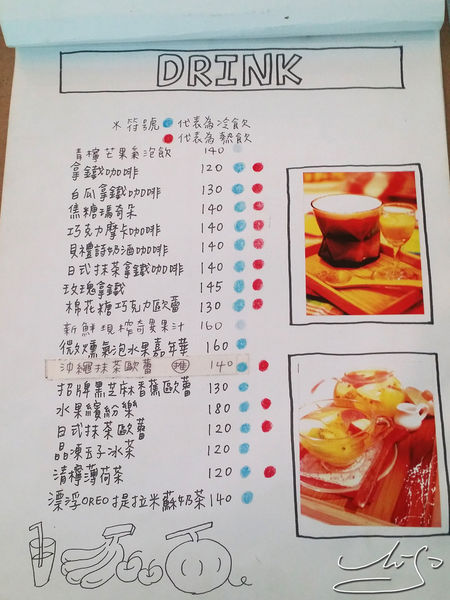 DRINK
※符號 代表為冷飲
代表為熱飲
青檸芒果氣泡飲 140
拿鐵咖啡 120
白瓜拿鐵咖啡 130
焦糖瑪奇朵 140
巧克力摩卡咖啡 140
貝禮詩奶酒咖啡 140
日式抹茶拿鐵咖啡 140
玫瑰拿鐵 145
棉花糖巧克力歐蕾 130
新鮮現榨奇異果汁 160
微效薰氣泡水果嘉年華 160
沖繩抹茶歐蕾 推 140
招牌黑芝麻香蕉歐蕾 130
水果繽紛樂 180
日式抹茶歐蕾 120
晶凍五子冰茶 120
清檸薄荷茶 120
漂浮OREO提拉米蘇奶茶 140